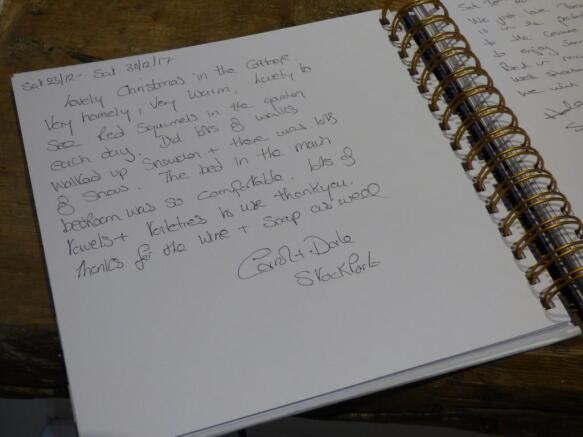 Sat 23/12 - Sat 30/12/17
Lovely Christmas in the Cottage,
Very homely, Very warm, Lovely to
see Red Squirrels in the garden
each day. Did lots of walks
walked up Snowdon + there was lots
of snow. The bed in the main
bedroom was so comfortable. lots of
towels + to use thankyou.
Thanks for the wine + soap as well
Carol + Dale
Stockport
We just love
is in the
to the
to enjoy